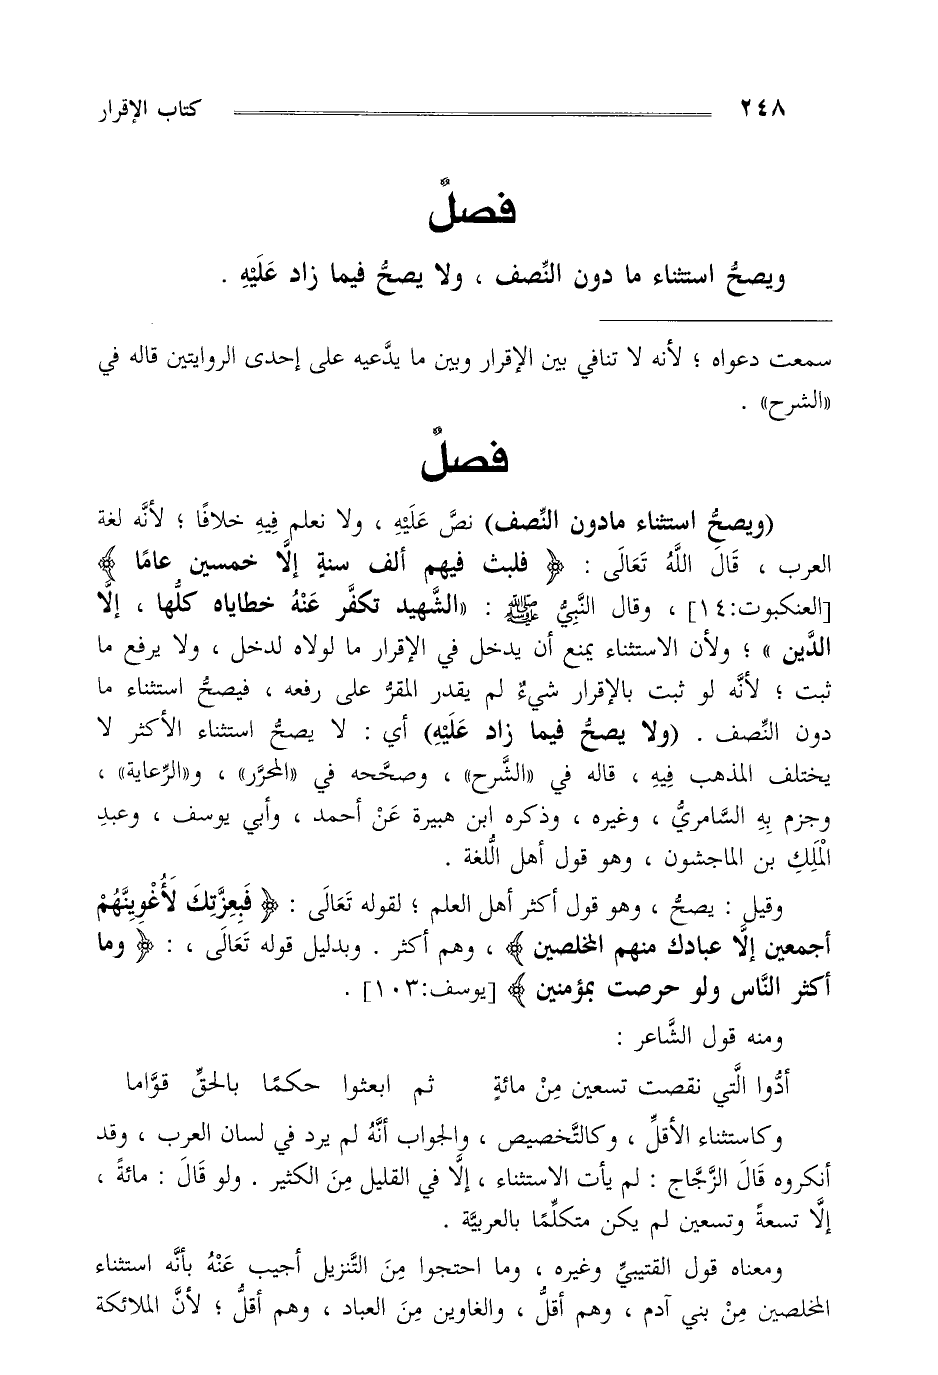 ٢٤٨ كتاب الإقرار
فصلٌ
ويصحُّ استثناء ما دون النِّصف ، ولا يصحُّ فيما زاد عَلَيْهِ .
سمعت دعواه ؛ لأنه لا تنافي بين الإقرار وبين ما يدَّعيه على إحدى الروايتين قاله في
«الشرح» .
فصلٌ
(ويصحُّ استثناء مادون النِّصف) نصَّ عَلَيْهِ ، ولا نعلم فِيهِ خلافًا ؛ لأنَّه لغة
العرب ، قَالَ اللَّهُ تَعَالَى : ﴿ فلبث فيهم ألف سنةٍ إلَّا خمسين عامًا ﴾
[العنكبوت:١٤] ، وقال النَّبيُّ ﷺ : «الشَّهيد تكفَّر عَنْهُ خطاياه كلُّها ، إلَّا
الدَّين » ؛ ولأن الاستثناء يمنع أن يدخل في الإقرار ما لولاه لدخل ، ولا يرفع ما
ثبت ؛ لأنَّه لو ثبت بالإقرار شيءٌ لم يقدر المقرُّ على رفعه ، فيصحُّ استثناء ما
دون النِّصف . (ولا يصحُّ فيما زاد عَلَيْهِ) أي : لا يصحُّ استثناء الأكثر لا
يختلف المذهب فِيهِ ، قاله في «الشَّرح» ، وصحَّحه في «المحرَّر» ، و«الرِّعاية» ،
وجزم بِهِ السَّامريُّ ، وغيره ، وذكره ابن هبيرة عَنْ أحمد ، وأبي يوسف ، وعبدِ
الْمَلِكِ بن الماجشون ، وهو قول أهل الُّلغة .
وقيل : يصحُّ ، وهو قول أكثر أهل العلم ؛ لقوله تَعَالَى : ﴿ فَبِعِزَّتِكَ لَأُغْوِيَنَّهُمْ
أجمعين إلَّا عبادك منهم المخلصين ﴾ ، وهم أكثر . وبدليل قوله تَعَالَى ، : ﴿ وما
أكثر النَّاس ولو حرصت بمؤمنين ﴾ [يوسف:١٠٣] .
ومنه قول الشَّاعر :
أدُّوا الَّتي نقصت تسعين مِنْ مائةٍ ثم ابعثوا حكمًا بالحقِّ قوَّاما
وكاستثناء الأقلِّ ، وكالتَّخصيص ، والجواب أنَّهُ لم يرد في لسان العرب ، وقد
أنكروه قَالَ الزَّجَّاج : لم يأت الاستثناء ، إلَّا في القليل مِنَ الكثير . ولو قَالَ : مائةً ،
إلَّا تسعةً وتسعين لم يكن متكلِّمًا بالعربيَّة .
ومعناه قول القتيبيِّ وغيره ، وما احتجوا مِنَ التَّنزيل أجيب عَنْهُ بأنَّه استثناء
المخلصين مِنْ بني آدم ، وهم أقلُّ ، والغاوين مِنَ العباد ، وهم أقلُّ ؛ لأنَّ الملائكة